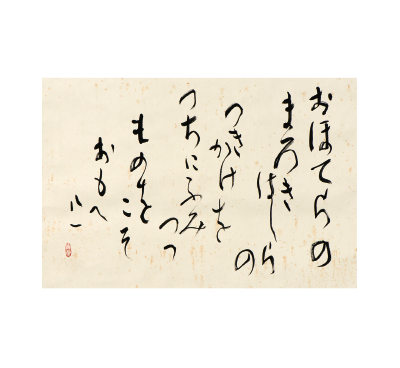 おほてらの
まろき
はしら
の
つき
かけを
つちにふみ
つつ
ものを
こそ
おもへ
八一